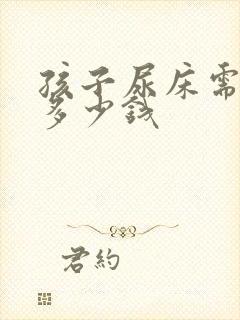 孩子尿床需
多少钱
君约